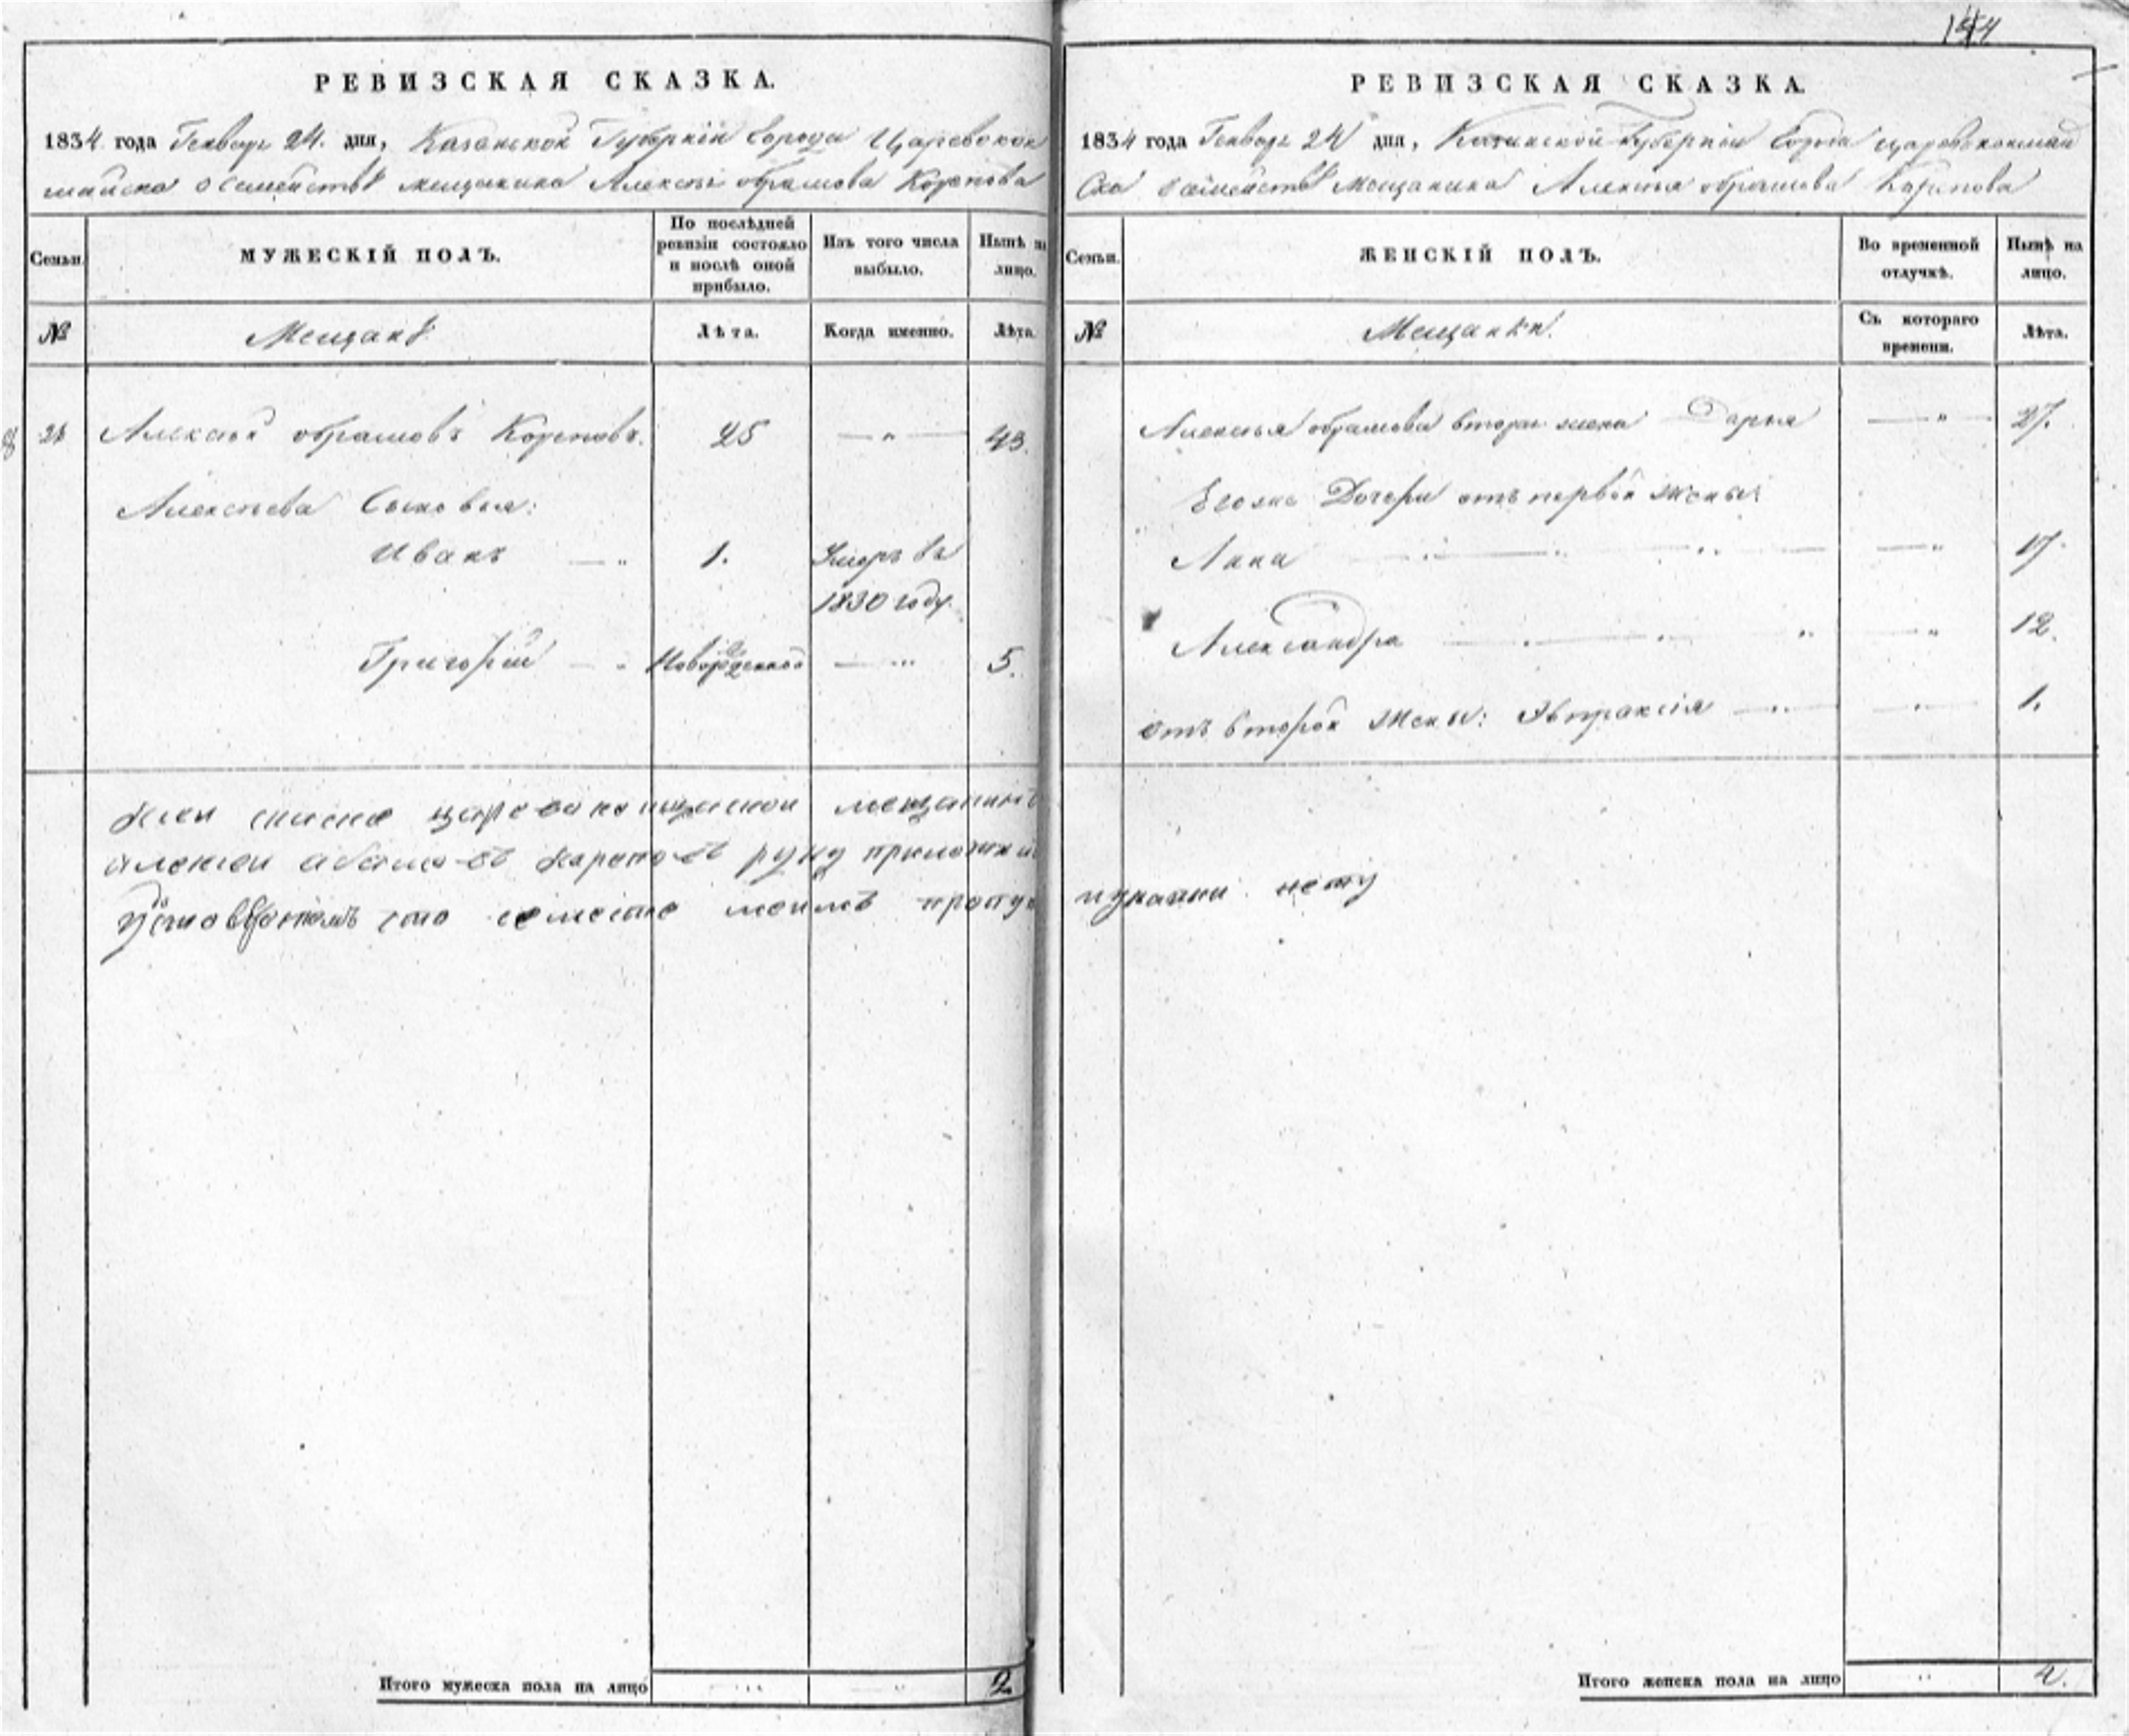 РЕВИЗСКАЯ СКАЗКА.
1834 года Генваря 24. дня, Казанской Губернiи Города Царевокок
шайска о семействѣ мещанина Алексѣя обрамова Корепова
Семьи.
МУЖЕСКIЙ ПОЛЪ.
По послѣдней ревизiи состояло и послѣ оной прибыло.
Изъ того числа выбыло.
Нынѣ на лицо.
№
Мещанѣ
Лѣта.
Когда именно.
Лѣта.
Алексѣй обрамовъ Кореповъ.
25
43.
Алексѣева Сыновья:
Иванъ
1.
Умеръ въ
1830 году.
Григорiй
Новорожденной
5.
мещанинъ
руку приложилъ
что
Итого мужеска пола на лицо
2
144
РЕВИЗСКАЯ СКАЗКА.
1834 года Генваря 24 дня, Казанской Губернiи Города царевококшай
ска о семействѣ Мещанина Алексѣя обрамова Карепова
Семьи.
ЖЕНСКIЙ ПОЛЪ.
Во временной отлучкѣ.
Нынѣ на лицо.
№
Мещанки.
Съ котораго времени.
Лѣта.
Алексѣя обрамова вторая жена Дарья
27.
Егоже Дочери отъ первой жены:
Анна
17
Александра
12.
отъ второй жены: Эвпраксiя
1.
нету
Итого женска пола на лицо
4.